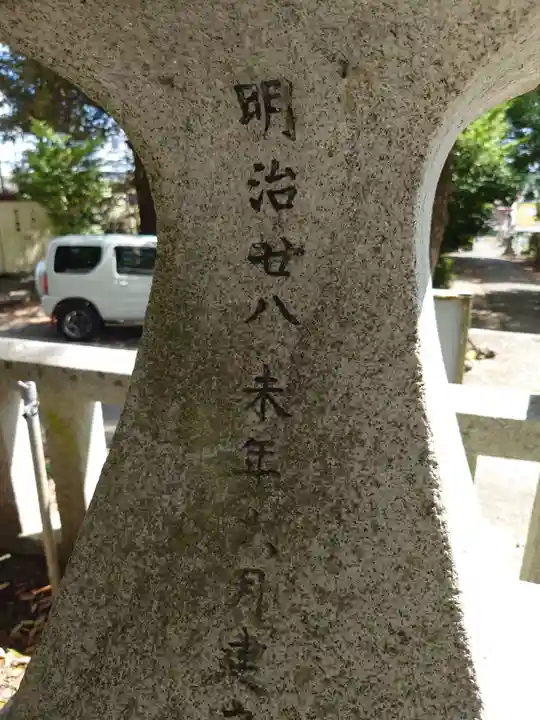 明治廿八未年六月建